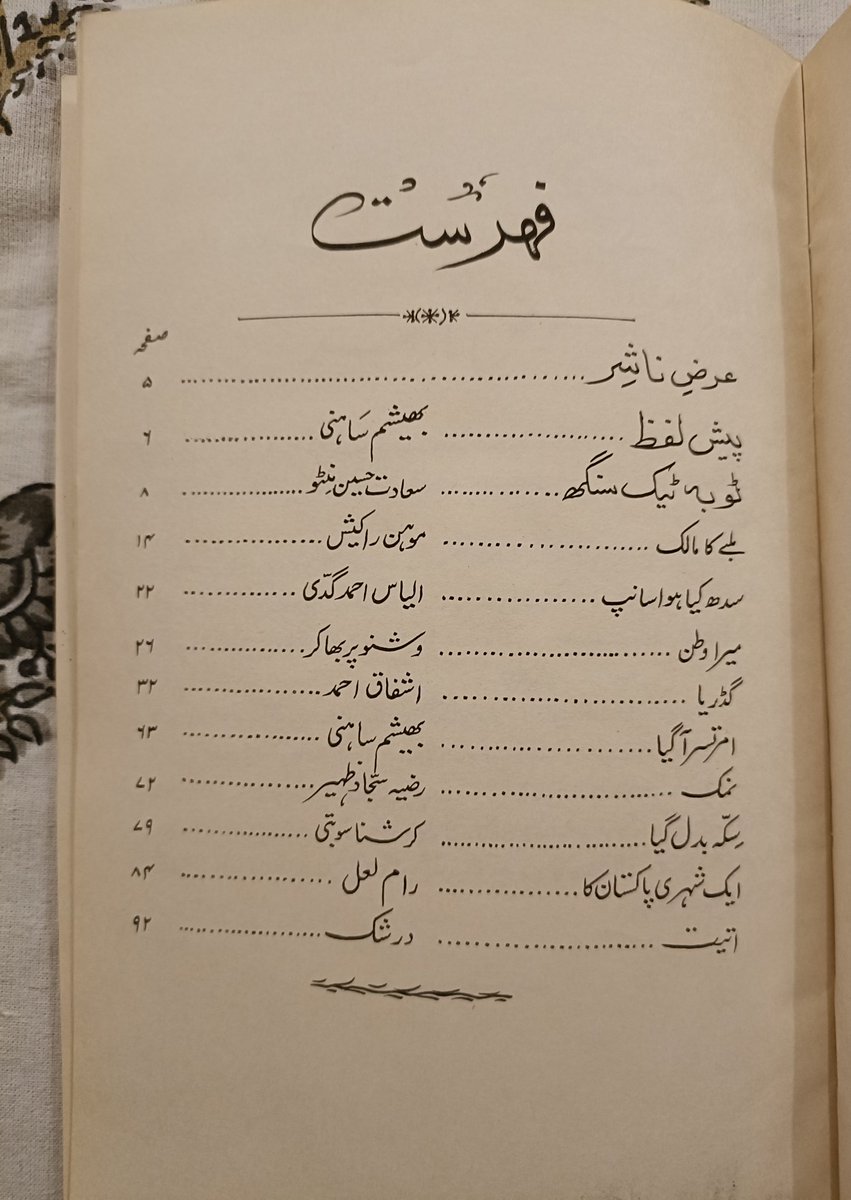 فہرست
صفحہ
عرضِ ناشِر ........ ۵
پیش لفظ ........ بھیشم ساہنی ........ ۶
ٹوبہ ٹیک سنگھ ........ سعادت حسین منٹو ........ ۸
ملبے کا مالک ........ موہن راکیش ........ ۱۴
سدھ کیا ہوا سانپ ........ الیاس احمد گدّی ........ ۲۲
میرا وطن ........ وشنو پربھاکر ........ ۲۶
گڈریا ........ اشفاق احمد ........ ۳۲
امرتسر آ گیا ........ بھیشم ساہنی ........ ۶۳
نمک ........ رضیہ سجّاد ظہیر ........ ۷۲
سِکّہ بدل گیا ........ کرشنا سوبتی ........ ۷۹
ایک شہری پاکستان کا ........ رام لعل ........ ۸۴
اتیت ........ درشک ........ ۹۲